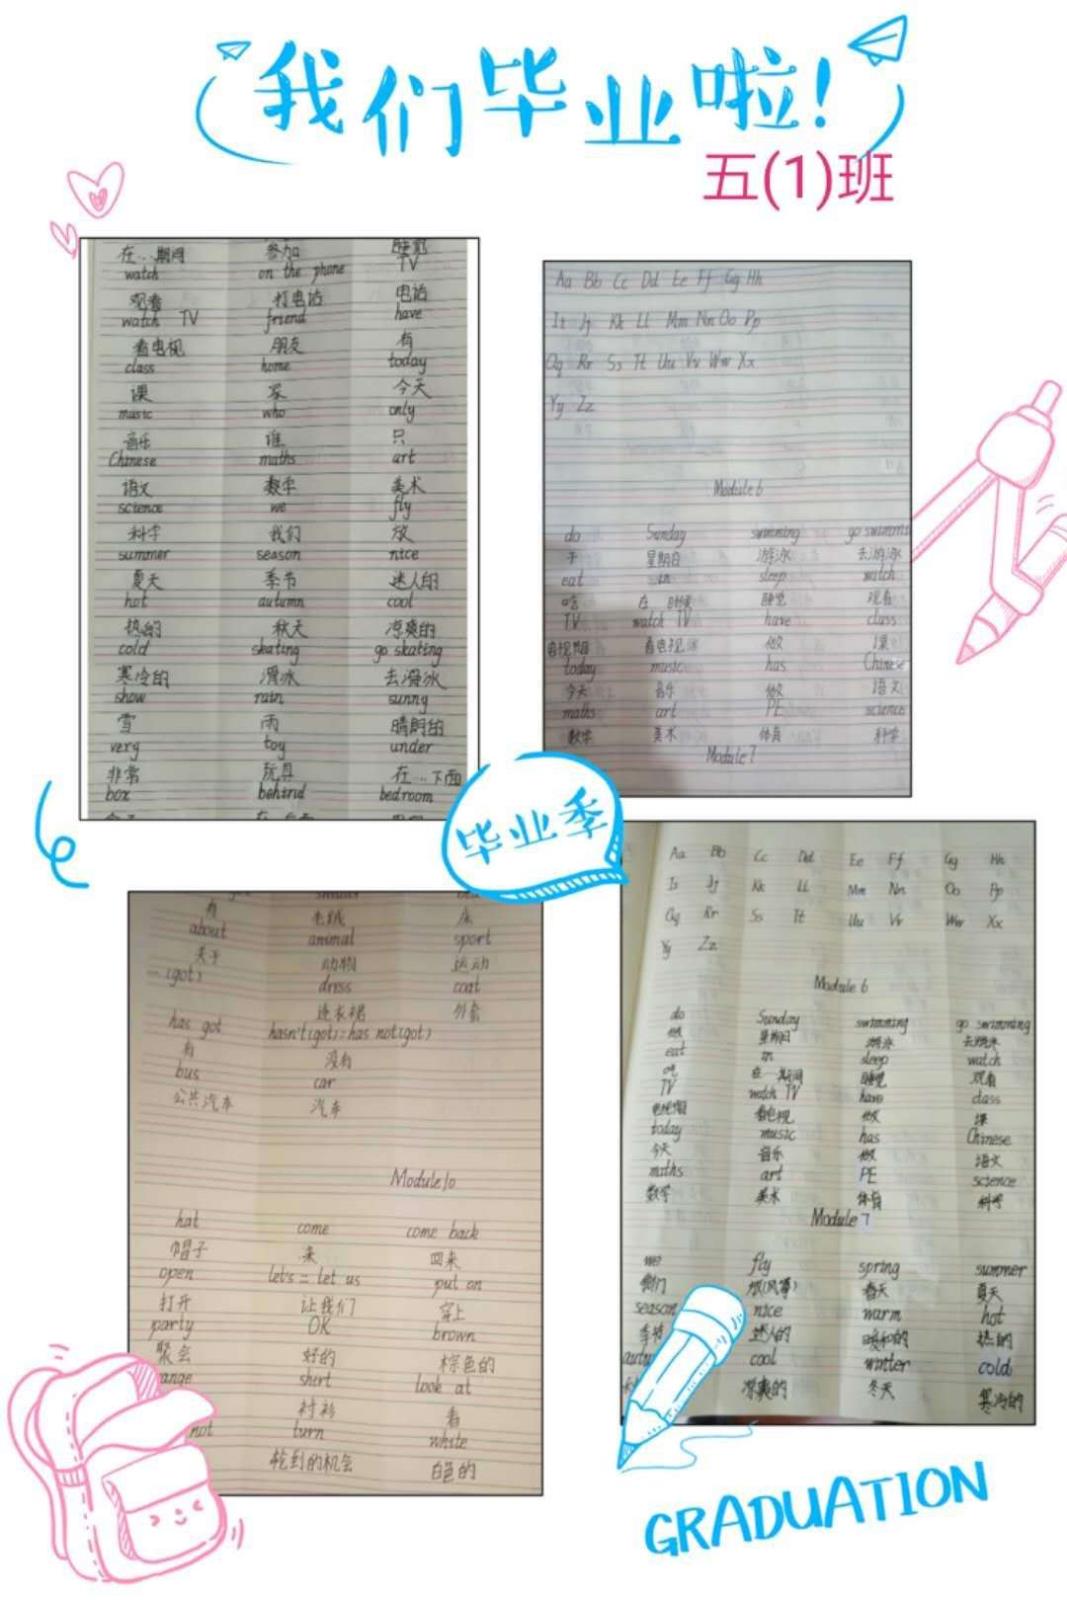 我们毕业啦!
五(1)班
在…期间 参加 睡觉
watch on the phone TV
观看 打电话 电话
watch TV friend have
看电视 朋友 有
class home today
课 家 今天
music who only
音乐 谁 只
Chinese maths art
语文 数学 美术
science we fly
科学 我们 放
summer season nice
夏天 季节 迷人的
hot autumn cool
热的 秋天 凉爽的
cold skating go skating
寒冷的 滑冰 去滑冰
snow rain sunny
雪 雨 晴朗的
very toy under
非常 玩具 在…下面
box behind bedroom
Aa Bb Cc Dd Ee Ff Gg Hh
Ii Jj Kk Ll Mm Nn Oo Pp
Qq Rr Ss Tt Uu Vv Ww Xx
Yy Zz
Module 6
do Sunday swimming go swimmi
干 星期日 游泳 去游泳
eat in sleep watch
吃 在 时候 睡觉 观看
TV watch TV have class
电视节目 看电视 做 课
today music has Chinese
今天 音乐 做 语文
maths art PE science
数学 美术 体育 科学
Module 7
毕业季
有 毛绒 床
about animal sport
关于 动物 运动
(got) dress coat
连衣裙 外套
has got hasn't(got)=has not(got)
有 没有
bus car
公共汽车 汽车
Module 10
hat come come back
帽子 来 回来
open let's = let us put on
打开 让我们 穿上
party OK brown
聚会 好的 棕色的
ange shirt look at
衬衫 看
not turn white
轮到的机会 白色的
Aa Bb Cc Dd Ee Ff Gg Hh
Ii Jj Kk Ll Mm Nn Oo Pp
Qq Rr Ss Tt Uu Vv Ww Xx
Yy Zz
Module 6
do Sunday swimming go swimming
做 星期日 游泳 去游泳
eat in sleep watch
吃 在…期间 睡觉 观看
TV watch TV have class
电视节目 看电视 做 课
today music has Chinese
今天 音乐 做 语文
maths art PE science
数学 美术 体育 科学
Module 7
we fly spring summer
我们 放(风筝) 春天 夏天
season nice warm hot
季节 迷人的 暖和的 热的
autu cool winter cold
凉爽的 冬天 寒冷的
GRADUATION